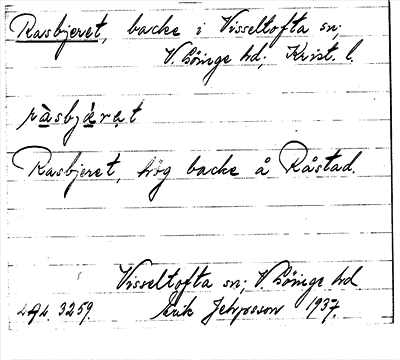 Rasbjeret, backe i Visseltofta sn;
V. Göinge hd; Krist. l.
ràsbjæ̀rət
Rasbjeret, hög backe å Råstad.
Visseltofta sn; V. Göinge hd
3259. Erik Jeppsson 1937.